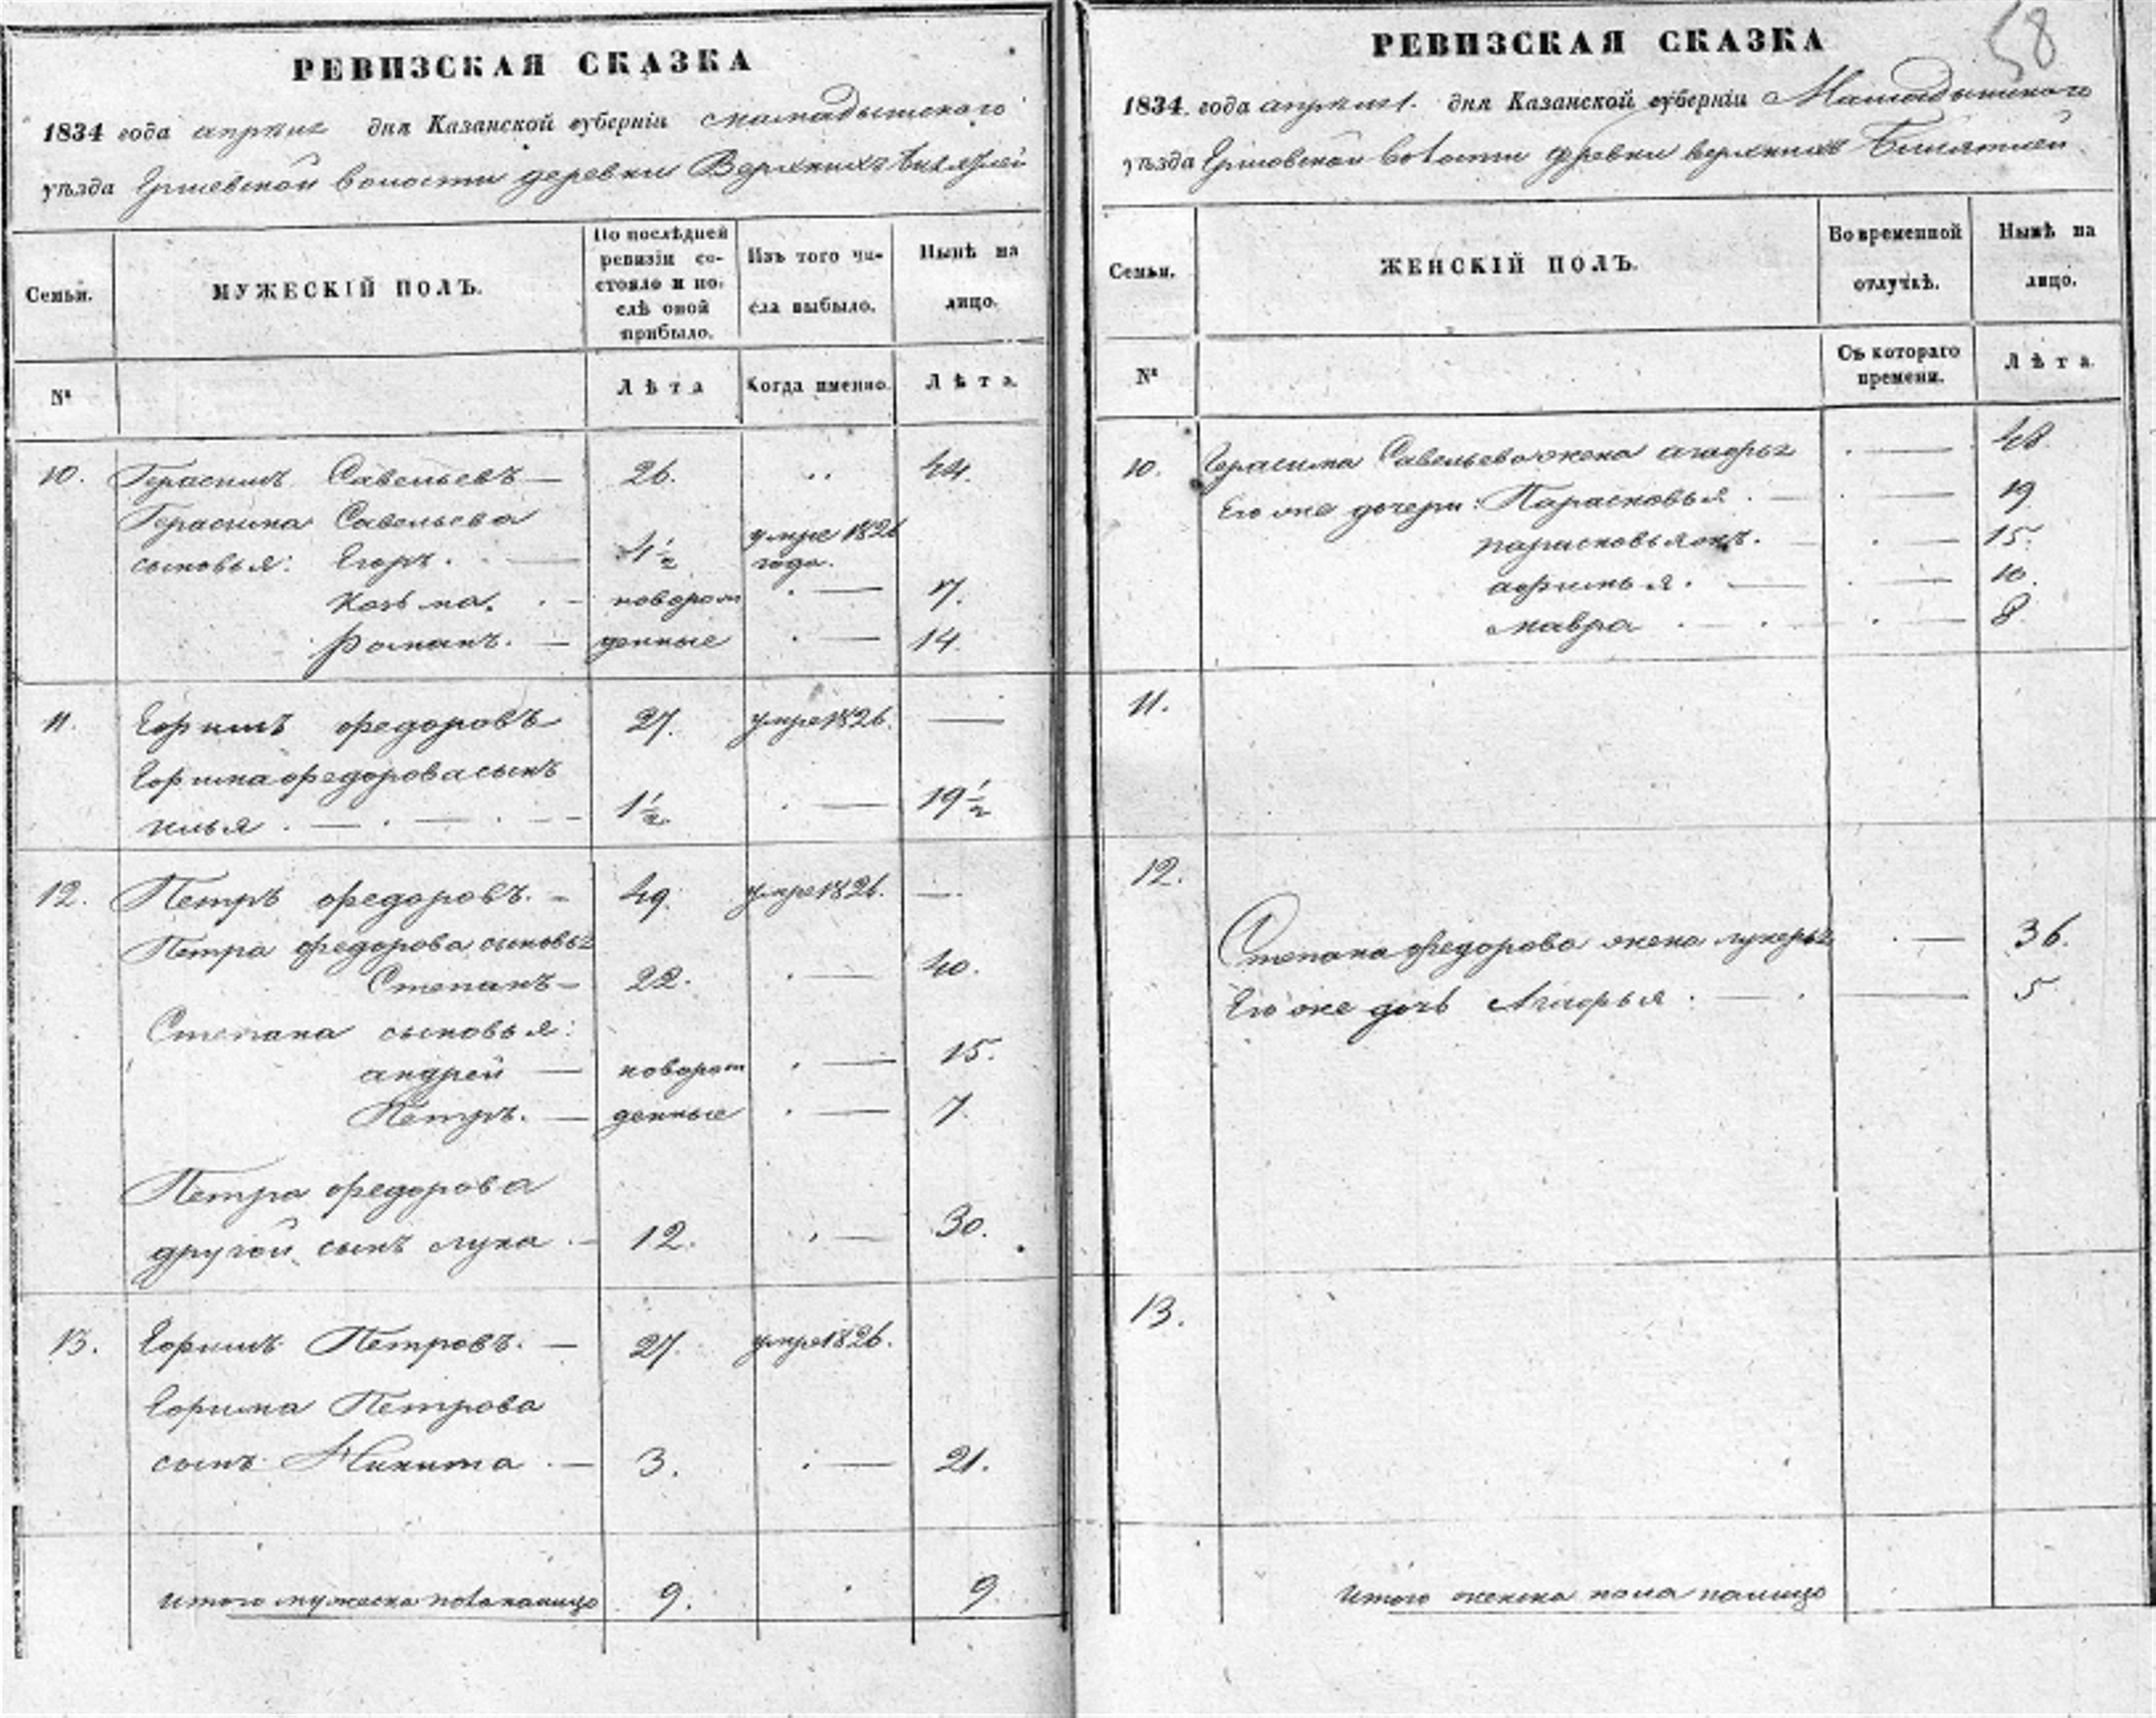 РЕВИЗСКАЯ СКАЗКА
1834 года апреля дня Казанской губерніи Мамадышского
уѣзда волости деревни Верхнихъ
Семьи.
МУЖЕСКІЙ ПОЛЪ.
По послѣдней
ревизіи со-
стояло и по-
слѣ оной
прибыло.
Изъ того чи-
сла выбыло.
Нынѣ на
лицо.
№
Лѣта
Когда именно.
Лѣта.
10. Герасимъ Савельевъ — 26. 44.
Герасима Савельева
сыновья: Егоръ. — 4½ умре 1826
года.
Козьма. новорож — 17.
Романъ. — денные — 14.
11. Ефимъ Федоровъ 27. умре 1826. —
Ефима Федорова сынъ
Илья. — 1½ — 19½
12. Петръ Федоровъ. — 49. умре 1826. —
Петра Федорова сыновья
Степанъ — 22. — 40.
Степана сыновья:
андрей — новорож — 15.
Петръ. — денные — 7.
Петра Федорова
другой сынъ лука. — 12. — 30.
13. Ефимъ Петровъ. — 27. умре 1826.
Ефима Петрова
сынъ Никита. — 3. — 21.
итого мужеска пола налицо 9. 9.
58
РЕВИЗСКАЯ СКАЗКА
1834. года апреля 1. дня Казанской губерніи Мамадышского
уѣзда волости деревни верхнихъ
Семьи.
ЖЕНСКІЙ ПОЛЪ.
Во временной
отлучкѣ.
Нынѣ на
лицо.
№
Съ котораго
времени.
Лѣта.
10. Герасима Савельева жена — 48
Его же дочери: Парасковья. — 19
парасковья — 15.
афимья. — 10.
мавра — 8
11.
12.
Степана Федорова жена лукерья — 36.
Его же дочь Агафья. — 5
13.
Итого женска пола налицо